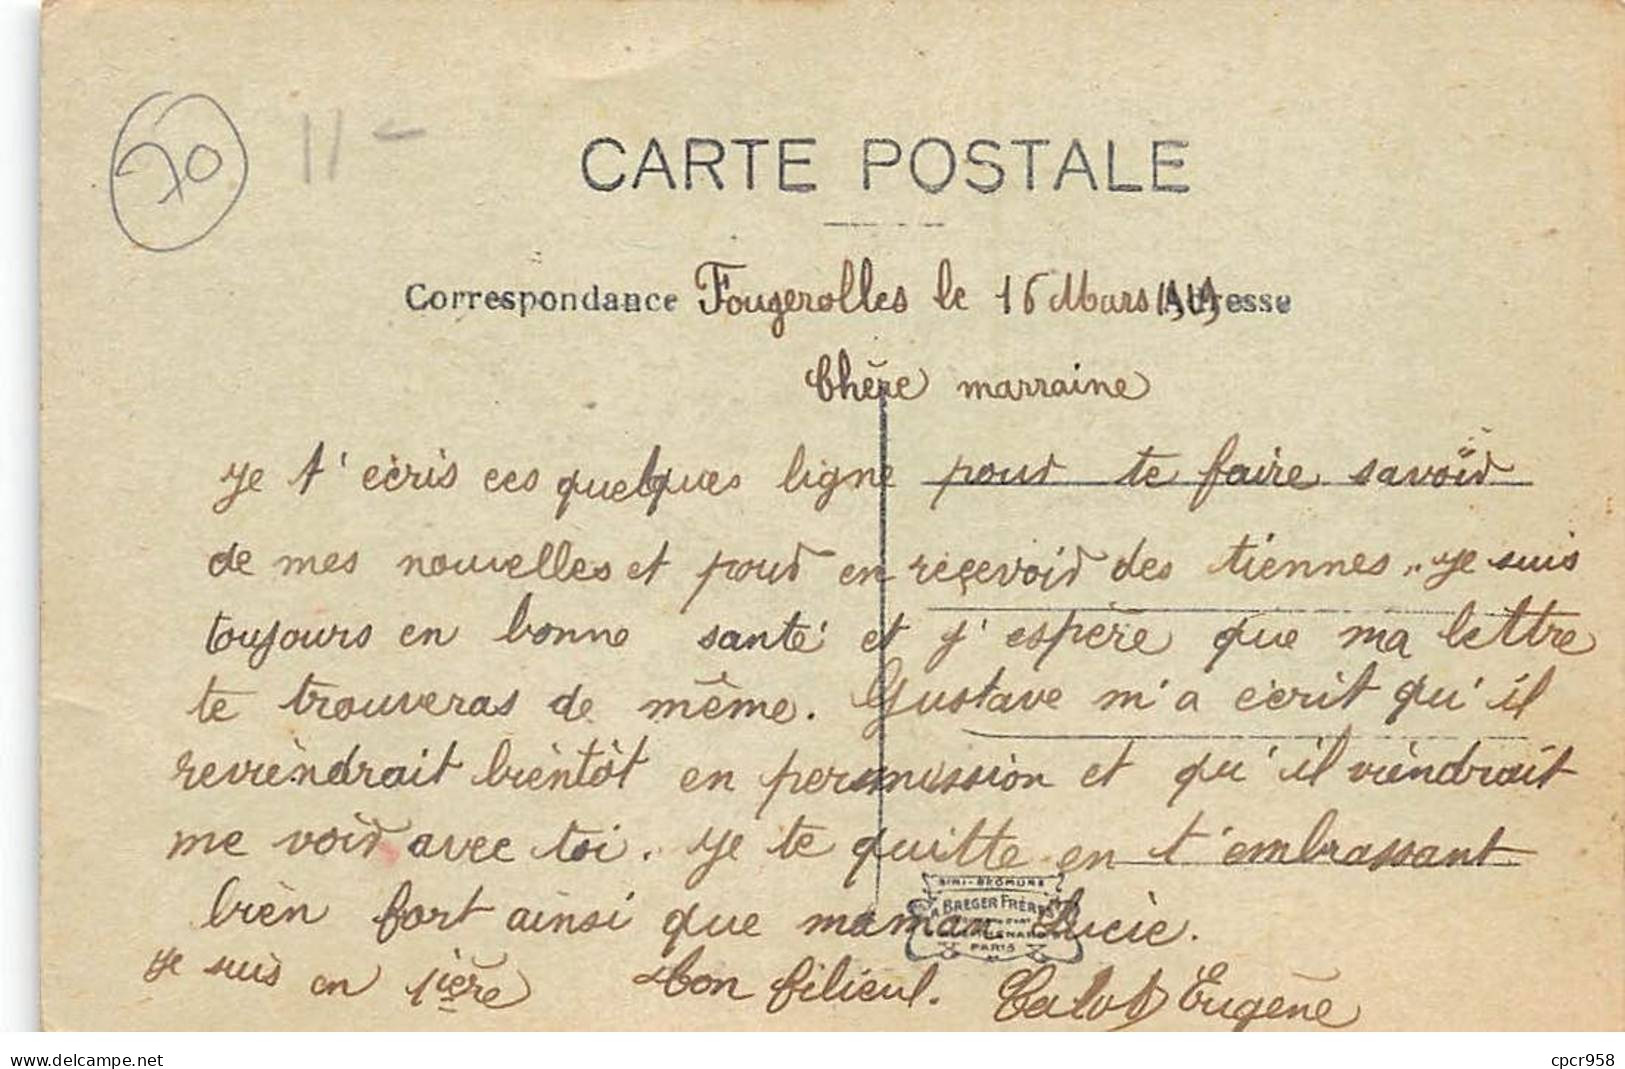 70 11 -
CARTE POSTALE
Correspondance Fougerolles le 16 Mars Adresse
Chère marraine
Je t'écris ces quelques ligne pour te faire savoir
de mes nouvelles et pour en reçevoir des tiennes. Je suis
toujours en bonne santé et j'espère que ma lettre
te trouveras de même. Gustave m'a écrit qu'il
reviendrait bientôt en permission et qu'il viendrait
me voir avec toi. Je te quitte en t'embrassant
SIMI-BROMURE
A BREGER FRÈRES
bien fort ainsi que maman Lucie.
PARIS
Je suis en 1ière Ton filieul. Calot Eugène
delcampe.net
cpcr958